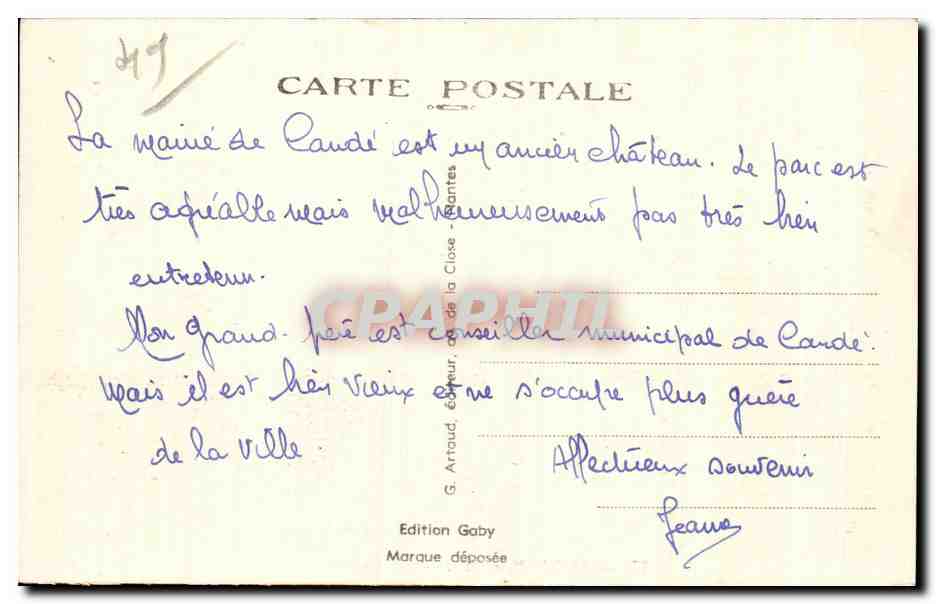 49
CARTE POSTALE
La mairie de Candé est un ancien château. Le parc est
très agréable mais malheureusement pas très bien
entretenu.
Mon Grand-père est conseiller municipal de Candé.
mais il est bien vieux et ne s'occupe plus guère
de la ville.
Affectueux souvenir
Jeanne
G. Artaud, éditeur, de la Close - Nantes
Edition Gaby
Marque déposée
CPAPHIL